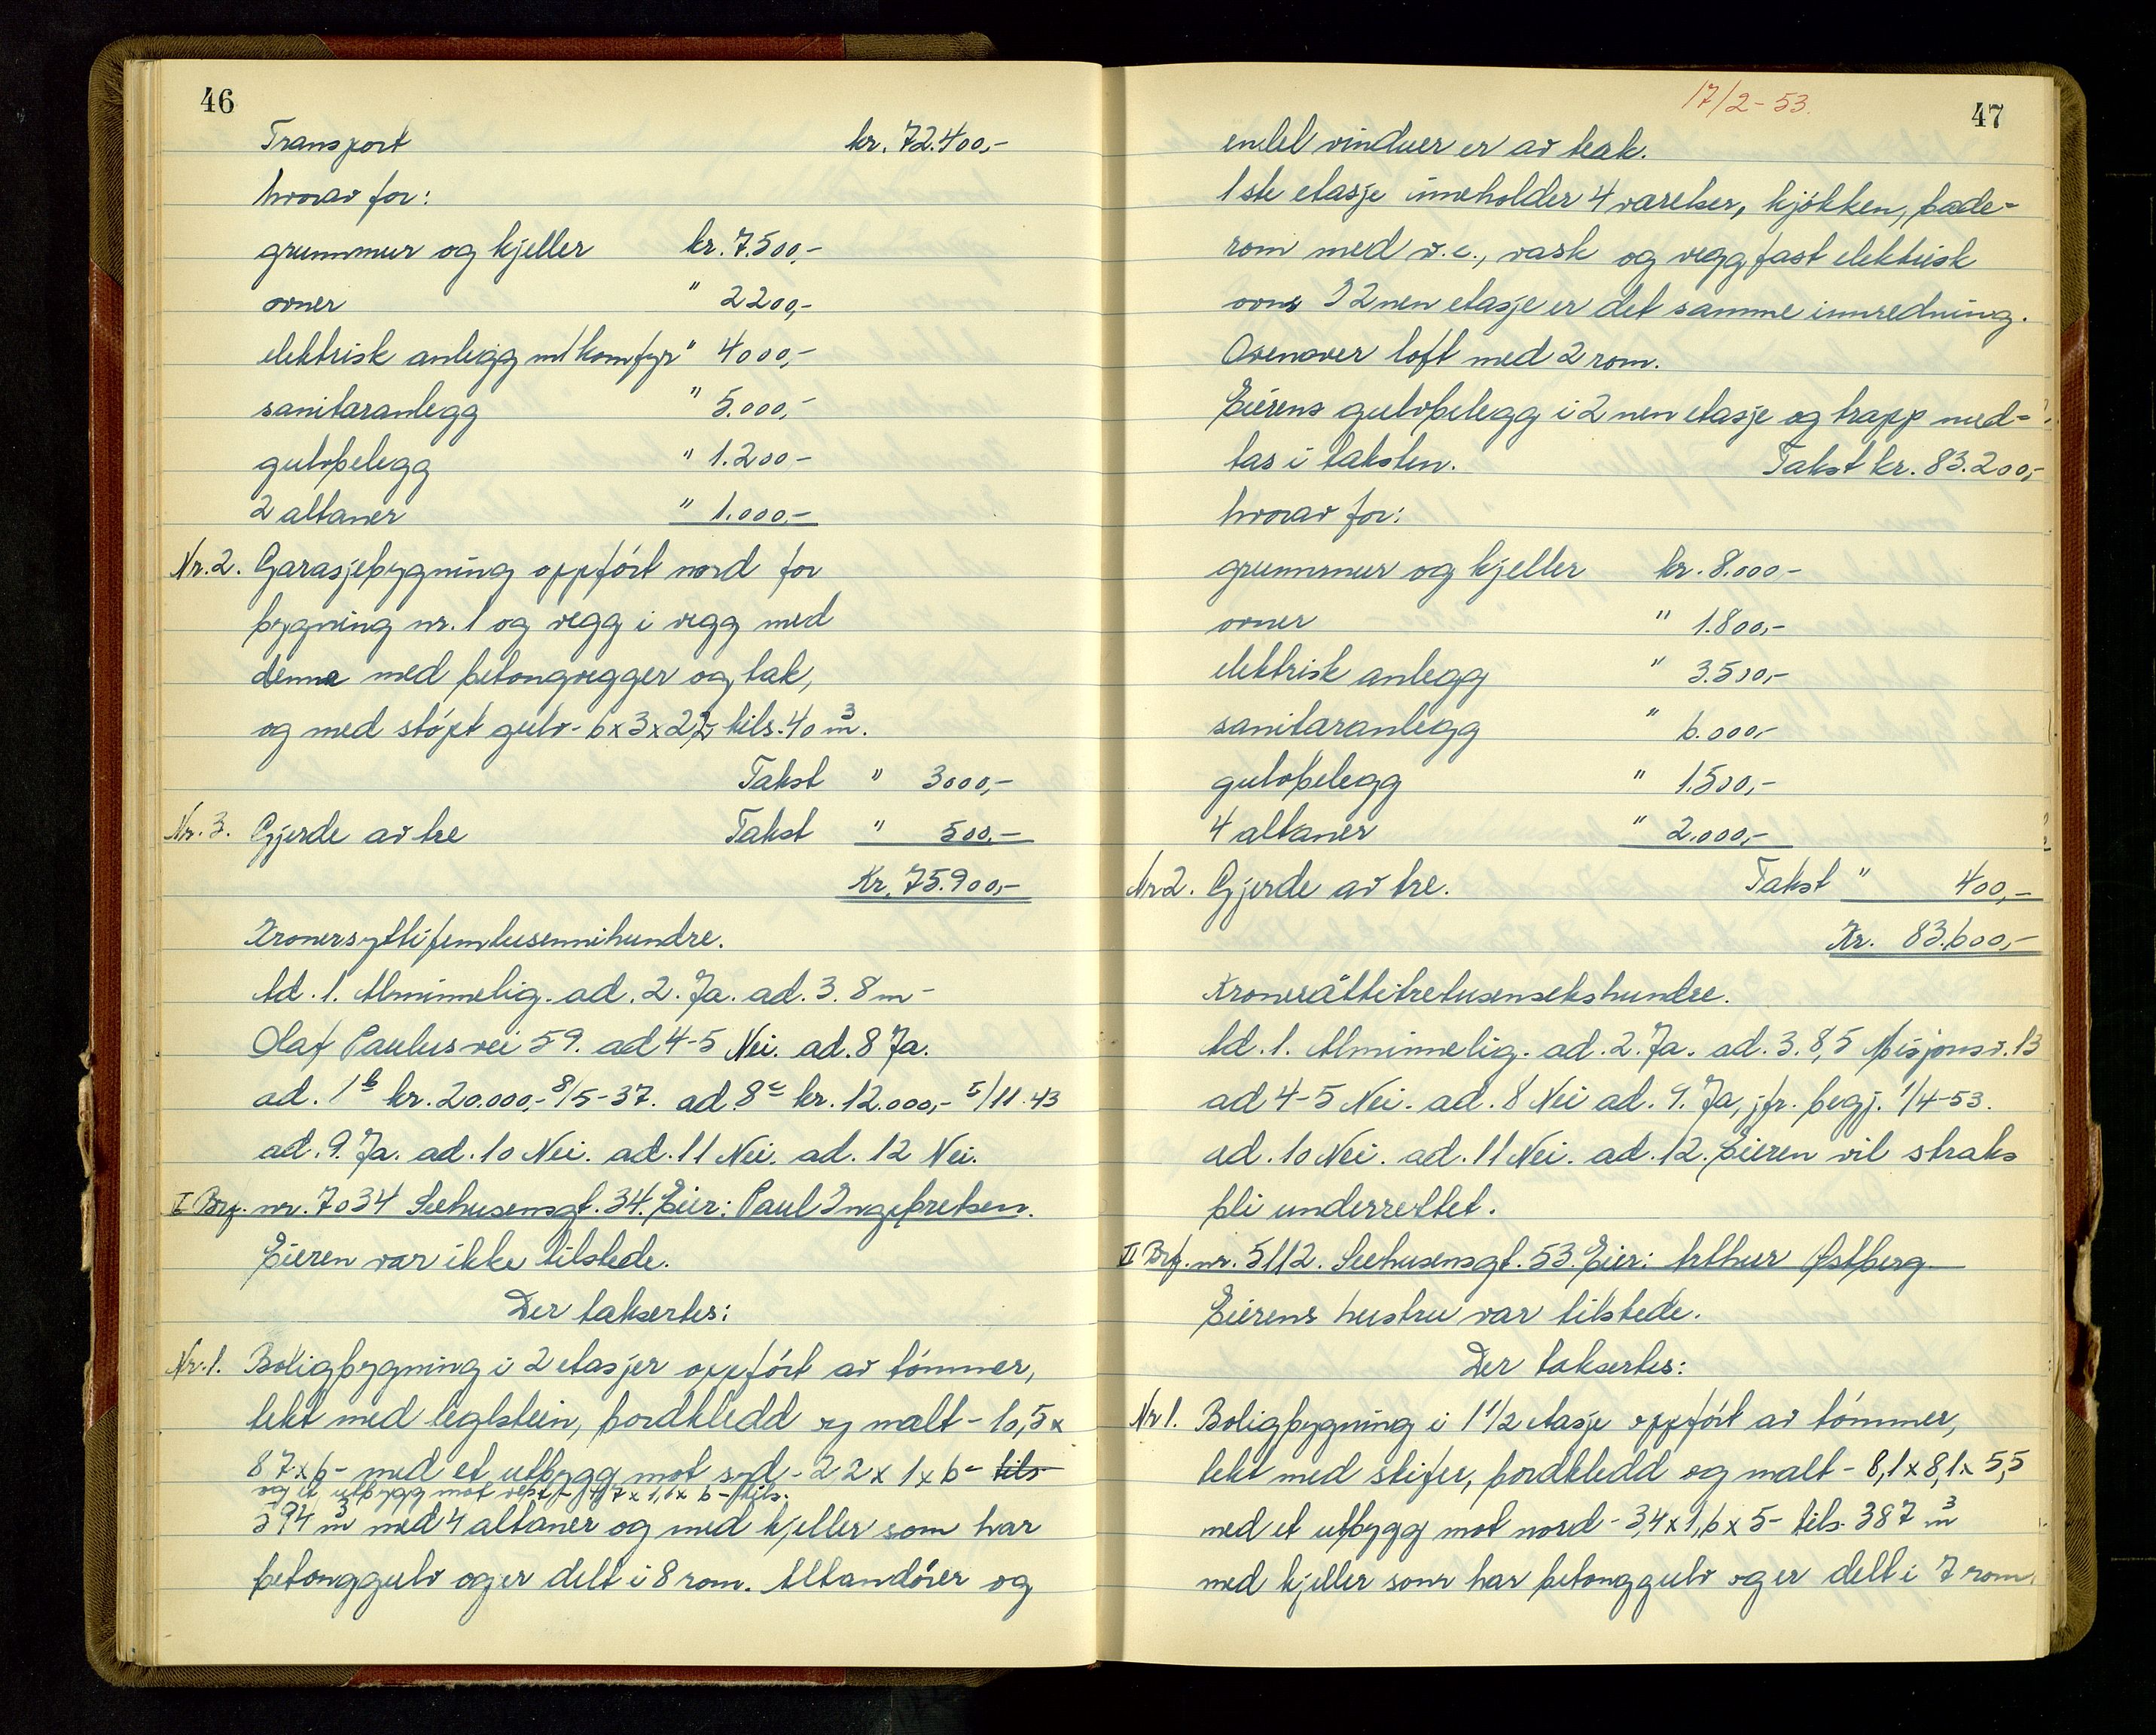 46
Transport kr. 72.400,-
hvorav for:
grunnmur og kjeller kr. 7.500,-
ovner " 2200,-
elektrisk anlegg m/komfyr " 4000,-
sanitæranlegg " 5.000,-
gulvbelegg " 1.200-
2 altaner " 1.000,-
Nr. 2. Garasjebygning oppført nord for
bygning nr. 1 og vegg i vegg med
denne med betongvegger og tak,
og med støpt gulv - 6x3x2,2- tils. 40 m³.
Takst " 3000,-
Nr. 3. Gjerde av tre Takst " 500.-
Kr. 75.900,-
Kronersyttifemtusennihundre.
Ad. 1. Alminnelig. ad. 2. Ja. ad. 3. 8 m-
Olaf Paulusvei 59. ad 4-5 Nei. ad. 8 Ja.
ad. 1 b kr. 20.000,- 8/5-37. ad 8 c kr. 12.000,- 5/11.43
ad. 9. Ja. ad. 10 Nei. ad. 11 Nei. ad. 12 Nei.
I Brf. nr. 7034 Seehusensgt. 34. Eier: Paul Ingebretsen.
Eieren var ikke tilstede.
Der taksertes:
Nr. 1. Boligbygning i 2 etasjer oppført av tømmer,
tekt med teglstein, bordkledd og malt - 10,5x
8,7x6- med et utbygg mot syd - 2,2 x 1 x 6 - tils
og et utbygg mot vest - 4,7 x 1,6 x 6 - tils.
594 m³ med 4 altaner og med kjeller som har
betonggulv og er delt i 8 rom. Altandører og
17/2-53.
47
endel vinduer er av teak.
1ste etasje inneholder 4 værelser, kjøkken, bade-
rom med w.c., vask og veggfast elektrisk
ovn. I 2nen etasje er det samme innredning.
Ovenover loft med 2 rom.
Eierens gulvbelegg i 2nen etasje og trapp med-
tas i taksten. Takst kr. 83.200,-
hvorav for:
grunnmur og kjeller kr. 8.000-
ovner " 1.800,-
elektrisk anlegg " 3.500,-
sanitæranlegg " 6.000,-
gulvbelegg " 1.500,-
4 altaner " 2.000,-
Nr 2. Gjerde av tre. Takst " 400,-
Kr. 83.600,-
Kroneråttitretusensekshundre.
Ad. 1. Alminnelig. ad. 2. Ja. ad. 3. 8,5 Misjonsv. 13
ad 4-5 Nei. ad. 8 Nei ad. 9. Ja, jfr. begj. 1/4-53.
ad. 10 Nei. ad. 11 Nei. ad. 12. Eieren vil straks
bli underrettet.
II Brf. nr. 5112. Seehusensgt. 53. Eier: Arthur Østberg
Eierens hustru var tilstede.
Der taksertes:
Nr 1. Boligbygning i 1 1/2 etasje oppført av tømmer,
tekt med skifer, bordkledd og malt - 8,1 x 8,1 x 5,5
med et utbygg mot nord - 3,4 x 1,6 x 5 - tils. 387 m³
med kjeller som har betonggulv og er delt i 7 rom.